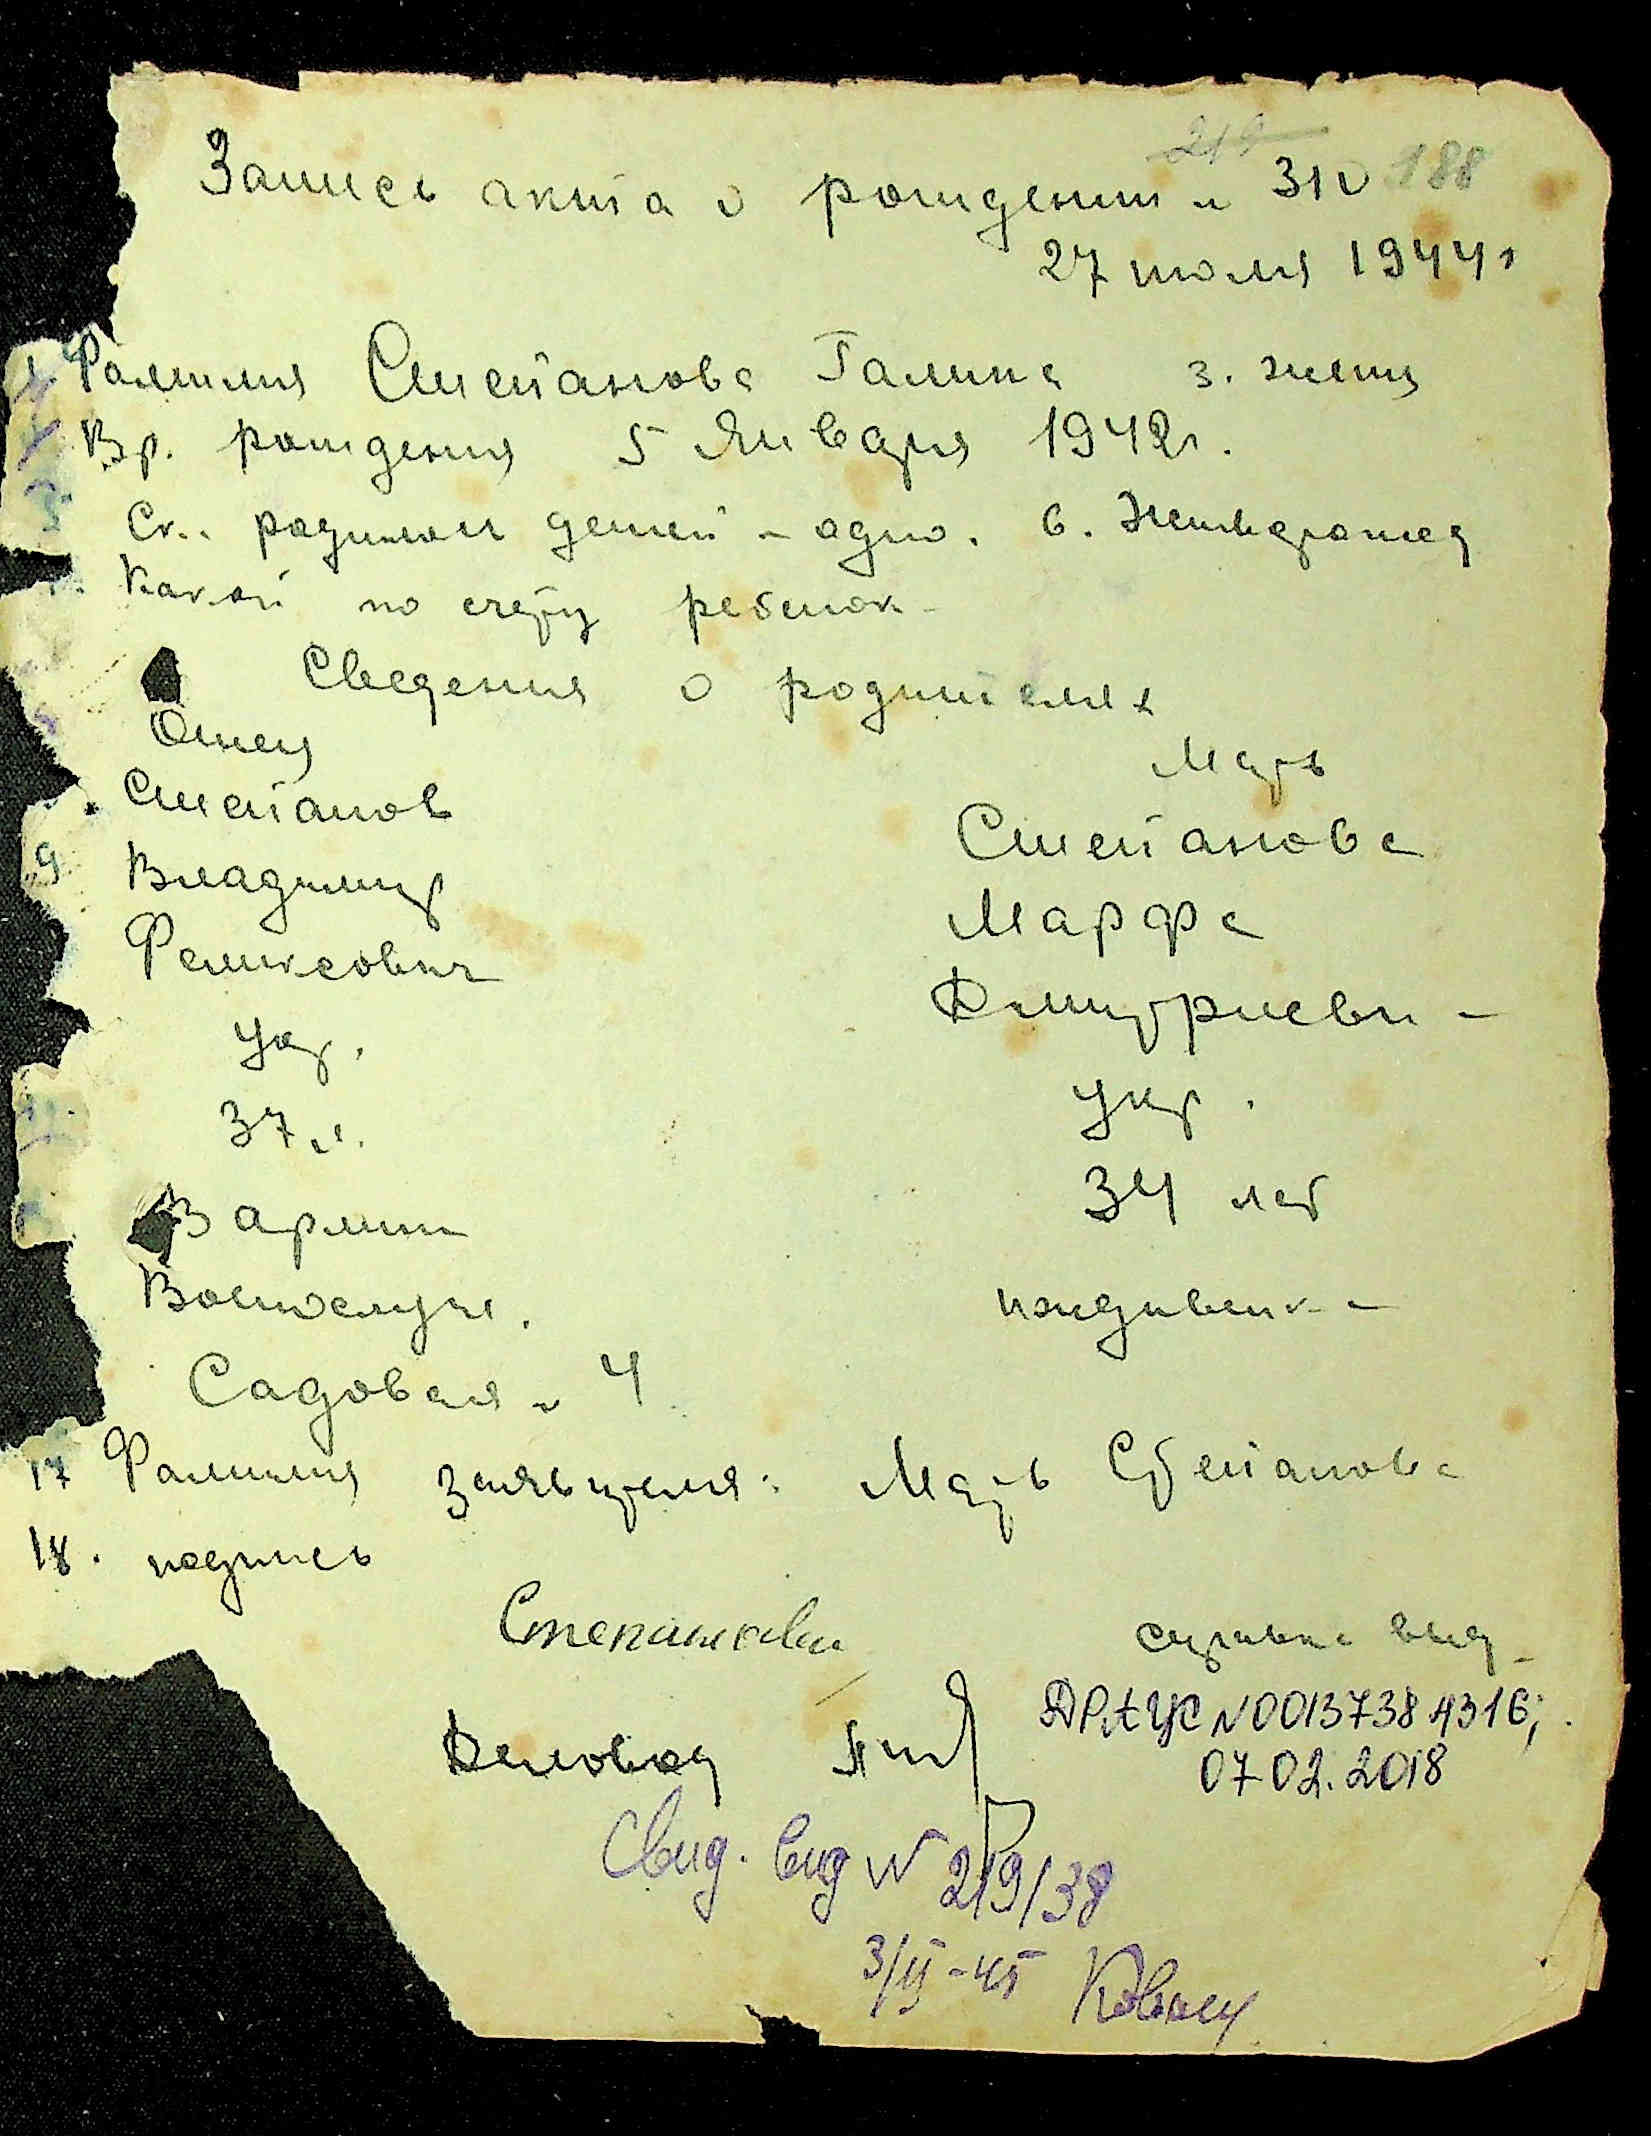 219 188
Запись акта о рождении № 310
27 июля 1944 г
1. Фамилия Степанова Галина 3. женщ
Вр. рождения 5 Января 1942 г.
Ск. родилось детей - одно. 6.
Какой по счету ребенок -
Сведения о родителях
Отец
Мать
Степанов
Степанова
9 Владимир
Марфа
Феликсович
Дмитриевн -
Укр.
Укр.
37 л.
34 лет
В армии
Военнослуж.
иждивенка
Садовая № 4
17 Фамилия заявителя: Мать Степанова
18. подпись
Степанова
справка выд
ДРАЦС №00137384316;
07 02. 2018
Деловод
Свид. выд № 219/38
3/II-45